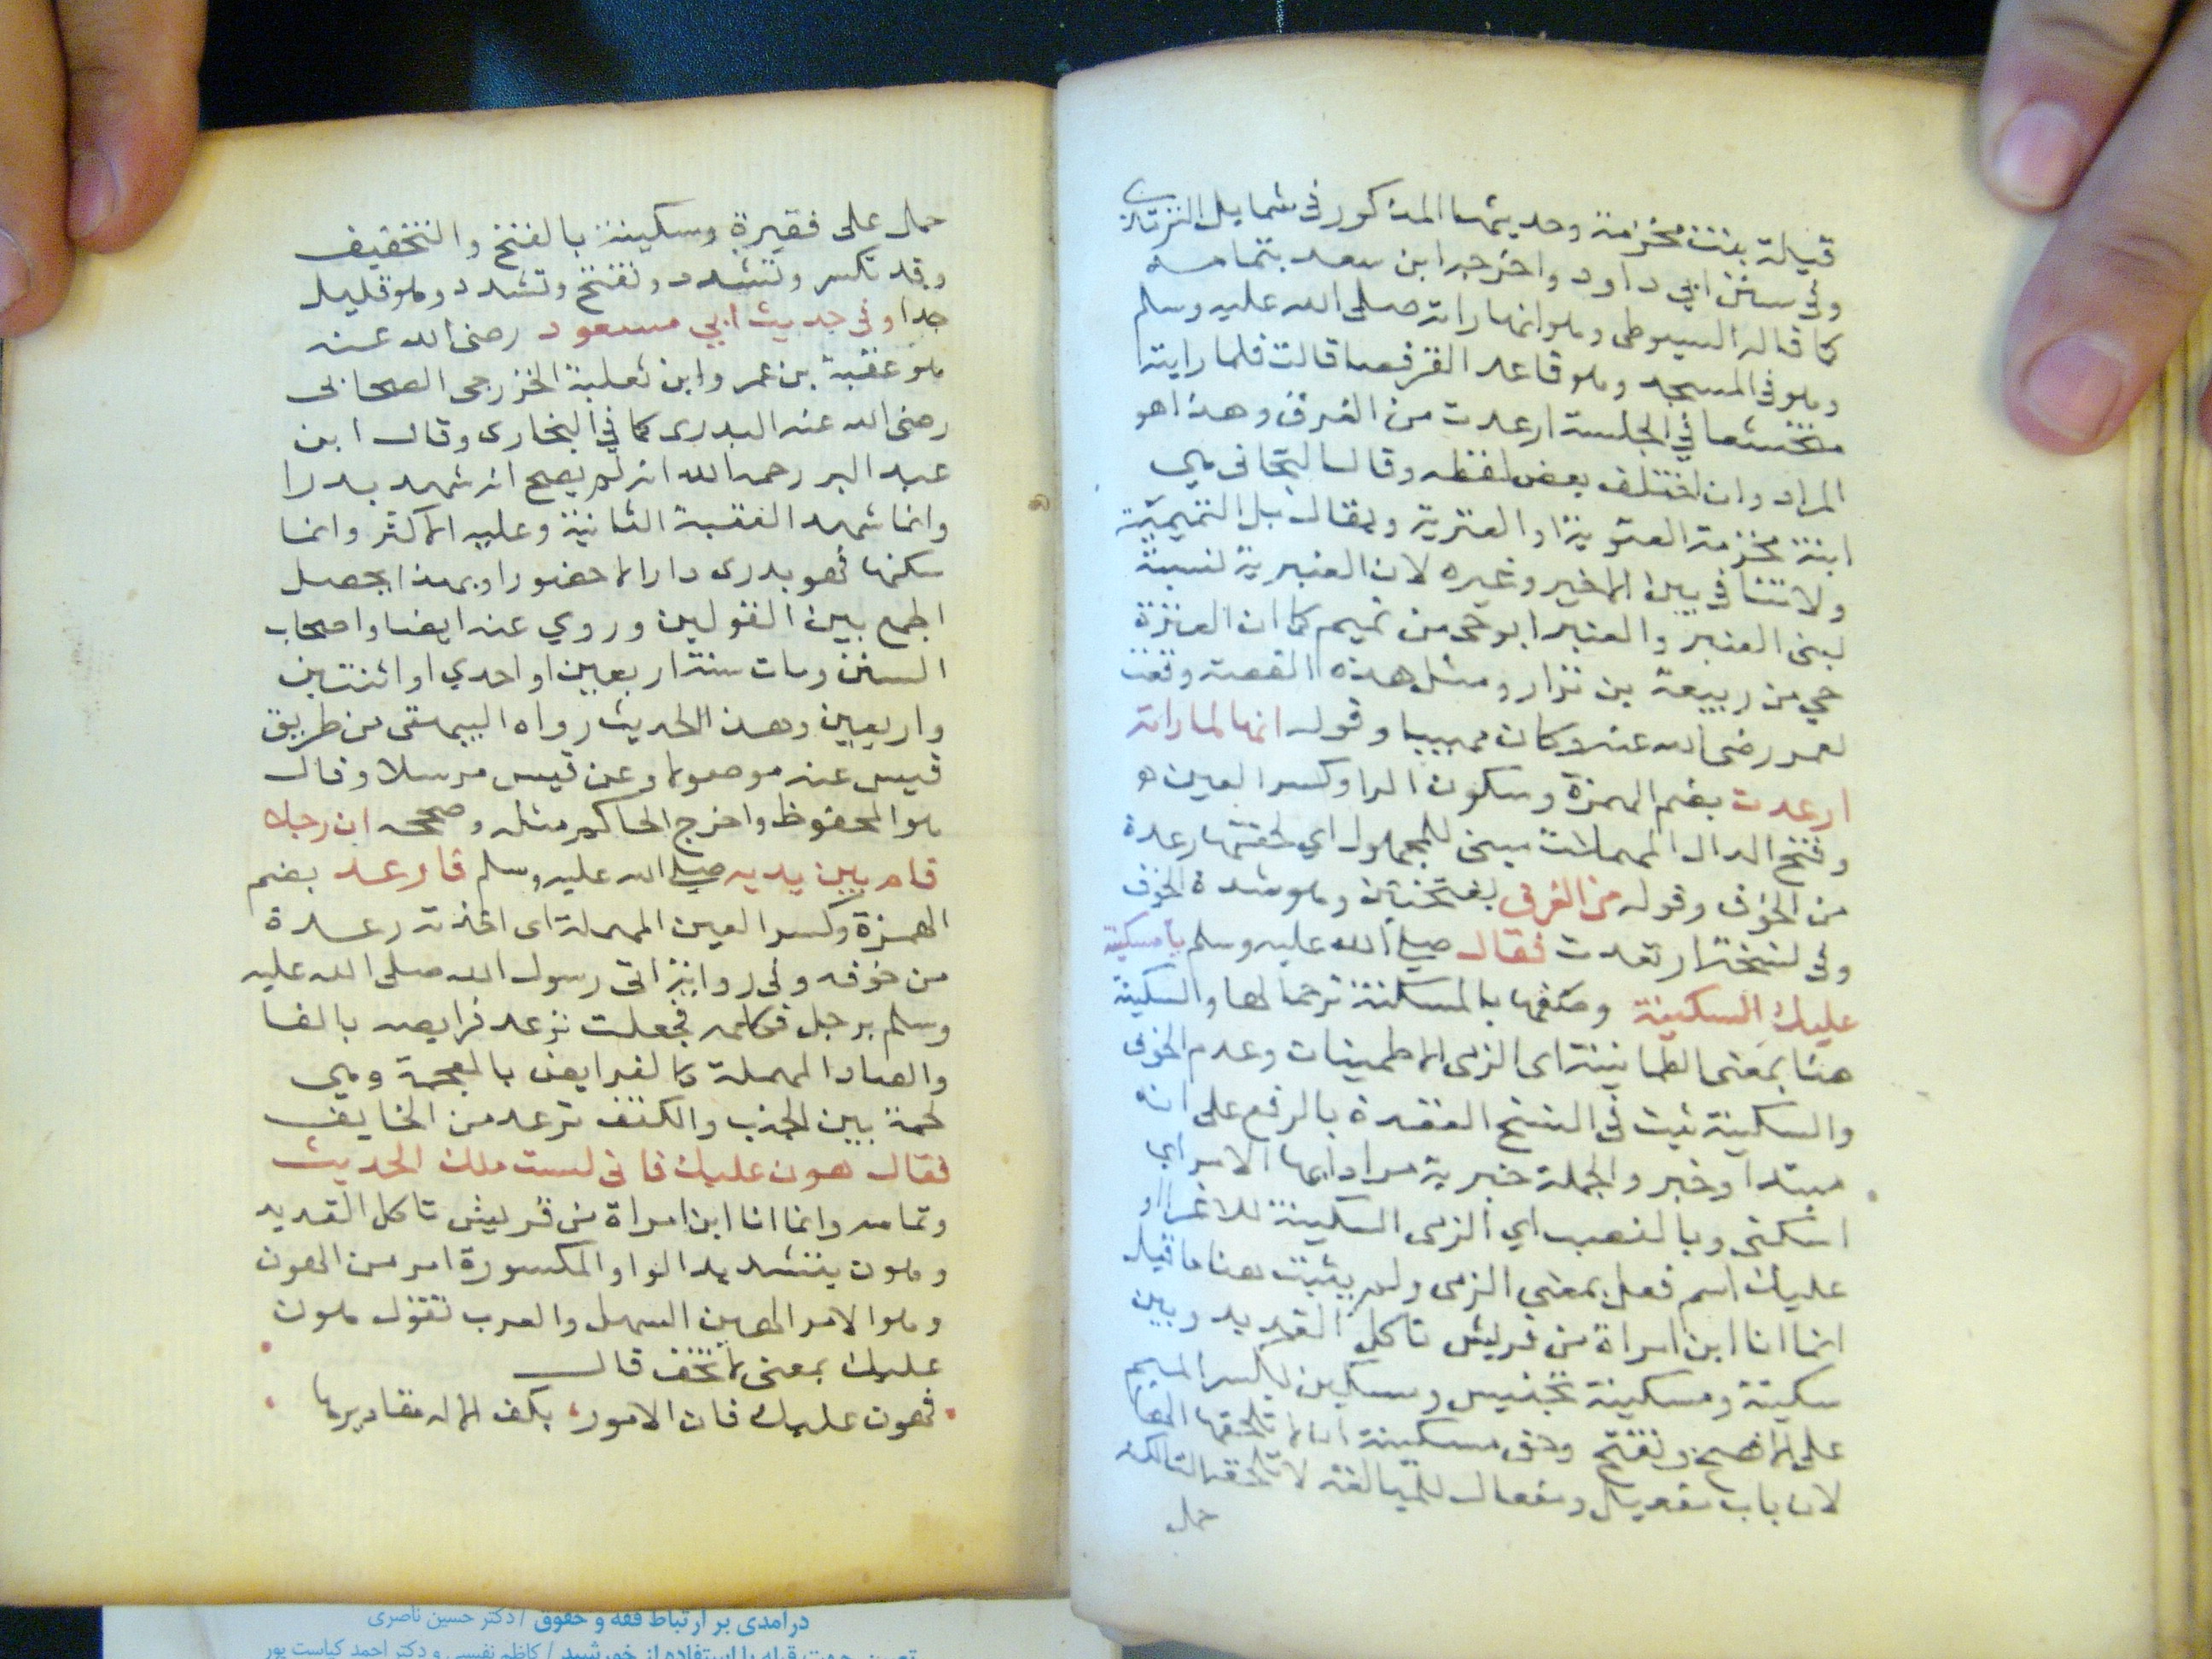 قيلة بنت مخزمة وحديثها المذكور في شمايل الترمذي
وفي سنن ابي داود واخرجه ابن سعد بتمامه
كما قاله السيوطى وهو انها راته صلى الله عليه وسلم
وهو في المسجد وهو قاعد القرفصا قالت فلما رايته
متخشعا في الجلسة ارعدت من الفرق وهذا هو
المراد وان اختلف بعض لفظه وقال التجانى هي
ابنة مخزمة العنوية او العنزية ويقال بل التميمية
ولا تنافى بين الاخير وغيره لان العنبرية نسبة
لبنى العنبر والعنبر ابو حى من تميم كما ان العنزة
حي من ربيعة بن نزار ومثل هذه القصة وقعت
لعمر رضى الله عنه وكان مهيبا وقوله انها لما راته
ارعدت بضم الهمزة وسكون الرا وكسر العين
وفتح الدال المهملات مبنى للمجهول اي لحقتها رعدة
من الخوف وقوله من الفرق بفتحتين وهو شدة الخوف
وفي نسخة ارتعدت فقال صلى الله عليه وسلم يا مسكينة
عليك السكينة وصفها بالمسكنة ترحما لها والسكينة
هنا بمعنى الطمانينة اى الزمى الاطمينان وعدم الخوف
والسكينة ثبت في النسخ بالرفع على انه
مبتدا وخبر والجملة خبرية مرادا بها الامر اي
اسكنى وبالنصب اي الزمى السكينة للاغرا او
عليك اسم فعل بمعنى الزمى ولم يثبت هنا ما قيل
انما انا ابن امراة من قريش تاكل القديد وبين
سكينة ومسكينة تجنيس ومسكين بكسر الميم
على الافصح وتفتح وحق مسكينة ان لا تلحقها الها
لان باب مفعيل ومفعال للمبالغة لا تلحقه التا لكنه
حمل
حمل على فقيرة وسكينة بالفتح والتخفيف
وقد تكسر وتشدد وتفتح وتشدد وهو قليل
جدا وفي حديث ابي مسعود رضى الله عنه
هو عقبة بن عمر وابن ثعلبة الخزرجى الصحابى
رضى الله عنه البدرى كما في البخارى وقال ابن
عبد البر رحمه الله انه لم يصح انه شهد بدرا
وانما شهد العقبة الثانية وعليه الاكثر وانما
سكنها فهو بدرى دارا لا حضورا وبهذا يحصل
الجمع بين القولين وروي عنه ايضا واصحاب
السنن ومات سنة اربعين او احدي او اثنتين
واربعين وهذا الحديث رواه البيهقى من طريق
قيس عنه موصولا وعن قيس مرسلا وقال
هو المحفوظ واخرج الحاكم مثله وصححه ان رجلا
قام بين يديه صلى الله عليه وسلم فارعد بضم
الهمزة وكسر العين المهملة اى اخذته رعدة
من خوفه وفى رواية اتى رسول الله صلى الله عليه
وسلم برجل فكلمه فجعلت ترعد فرايصه بالفا
والصاد المهملة كالفرايض بالمعجمة وهي
لحمة بين الجنب والكتف ترعد من الخايف
فقال هون عليك فانى لست ملك الحديث
وتمامه وانما انا ابن امراة من قريش تاكل القديد
وهون بتشديد الواو المكسورة امر من الهون
وهو الامر الهين السهل والعرب تقول هون
عليك بمعنى لا تخف قال
فهون عليك فان الامور، بكف الاله مقاديرها
درآمدی بر ارتباط فقه و حقوق / دکتر حسین ناصری
تعیین جهت قبله با استفاده از خورشید / کاظم نفیسی و دکتر احمد کیاست پور